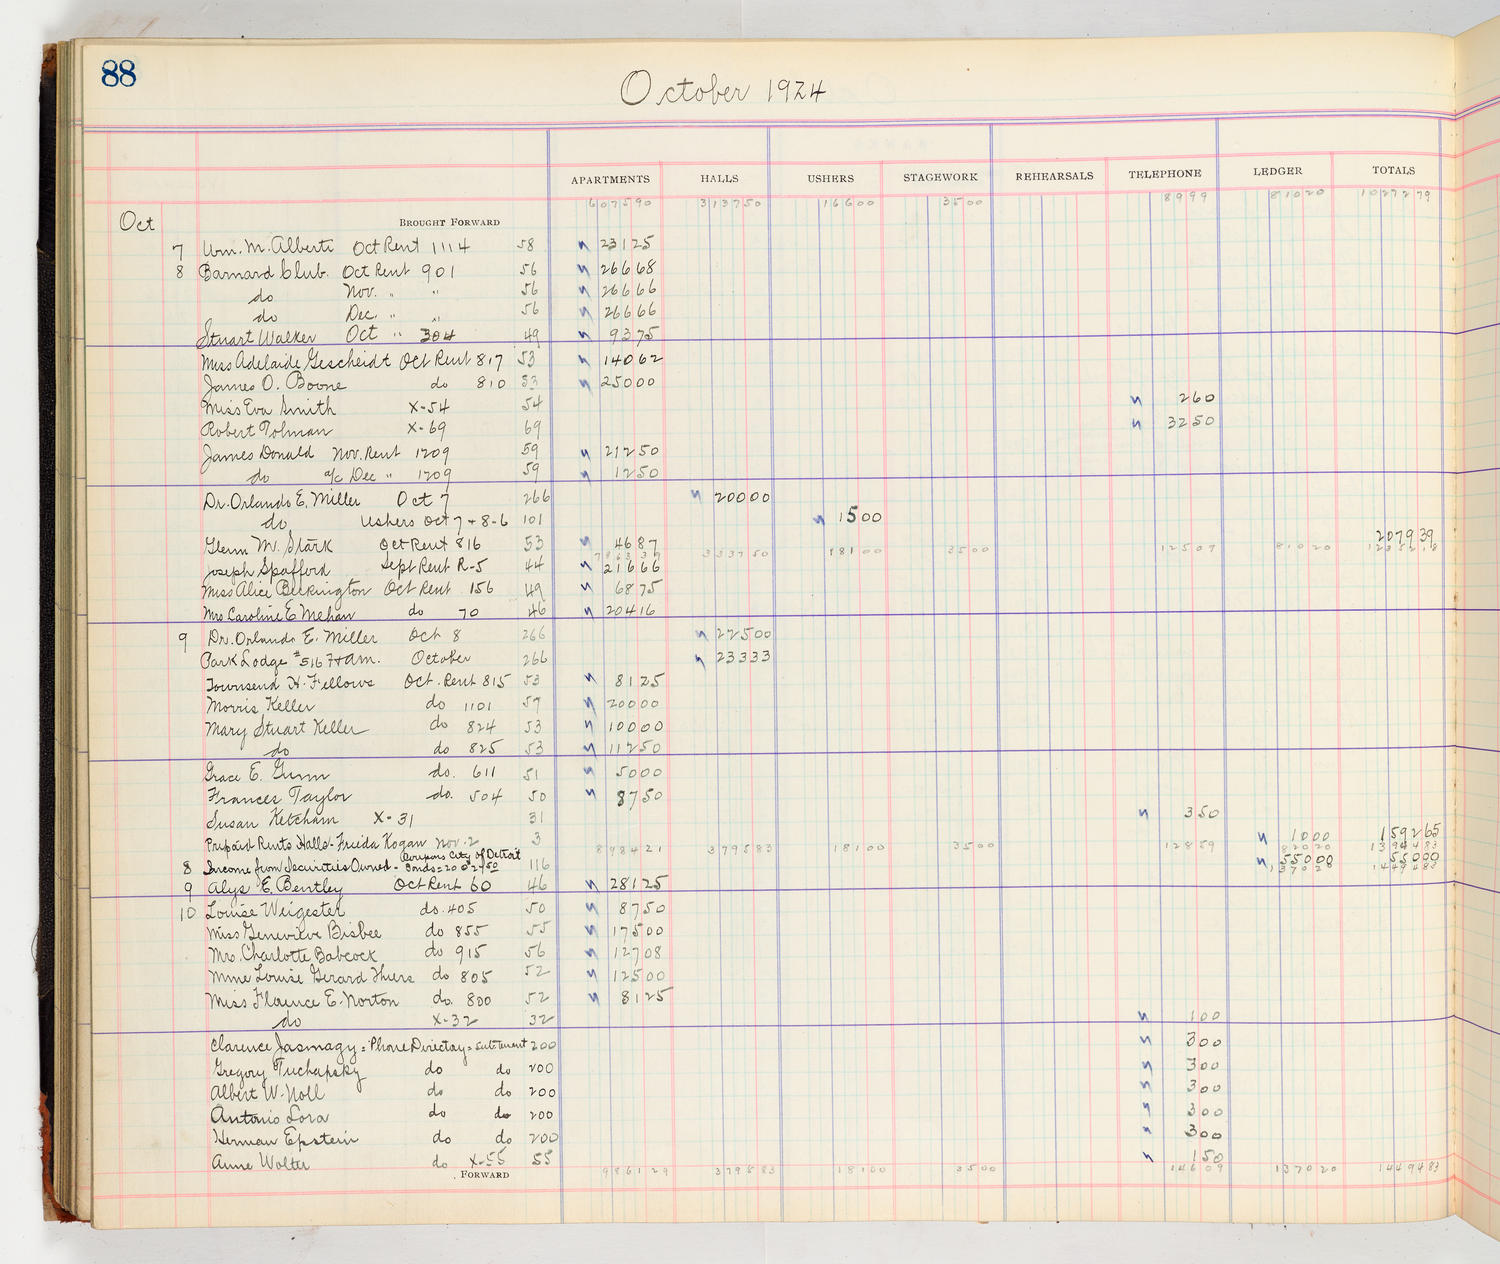 88
October 1924
APARTMENTS HALLS USHERS STAGEWORK REHEARSALS TELEPHONE LEDGER TOTALS
607590 313750 16600 3500 8999 81020 1027279
Oct BROUGHT FORWARD
7 Wm. M. Alberti Oct Rent 1114 58 23125
8 Barnard Club. Oct Rent 901 56 26668
do Nov. " " 56 26666
do Dec. " " 56 26666
Stuart Walker Oct " 304 49 9375
Miss Adelaide Gescheidt Oct Rent 817 53 14062
James O. Boone do 810 53 25000
Miss Eva Smith X-54 54 260
Robert Tolman X-69 69 3250
James Donald Nov. Rent 1209 59 21250
do a/c Dec " 1209 59 1250
Dr. Orlando E. Miller Oct 7 266 20000
do Ushers Oct 7 + 8-6 101 1500
Glenn M. Stark Oct Rent 816 53 4687 207939
333750 18100 3500 12509 81020
Joseph Spafford Sept Rent R-5 44 21666
Miss Alice Oct Rent 156 49 6875
Mrs Caroline E Mehan do 70 46 20416
9 Dr. Orlando E. Miller Oct 8 266 22500
Park Lodge #516 7+am. October 266 23333
Townsend H. Fellows Oct. Rent 815 53 8125
Morris Keller do 1101 57 20000
Mary Stuart Keller do 824 53 10000
do do 825 53 11250
Grace E. Gunn do. 611 51 5000
Frances Taylor do. 504 50 8750
Susan Ketcham X-31 31 350
Prepaid Rents Halls - Frieda Kogan Nov-2 3 1000 159265
898421 379583 18100 3500 12859 82020 1394483
Coupons City of Detroit
8 Income from Securities Owned - Bonds = 20 @ 27 50 116 55000 55000
137020 1449483
9 Alys E. Bentley Oct Rent 60 46 28125
10 Louise Weigester do. 405 50 8750
Miss Genevieve Bisbee do 855 55 17500
Mrs. Charlotte Babcock do 915 56 12708
Mme Louise Gerard Thiers do 805 52 12500
Miss Florence E. Norton do. 800 52 8125
do X-32 32 100
Clarence Jasmagy = Phone Directory = 200 300
Gregory Tuchapsky do do 200 300
Albert W. Noll do do 200 300
Antonio Lora do do 200 300
Herman Epstein do do 200 300
Anne Wolter do X-55 55 150
FORWARD 986129 379583 18100 3500 14609 137020 1449483